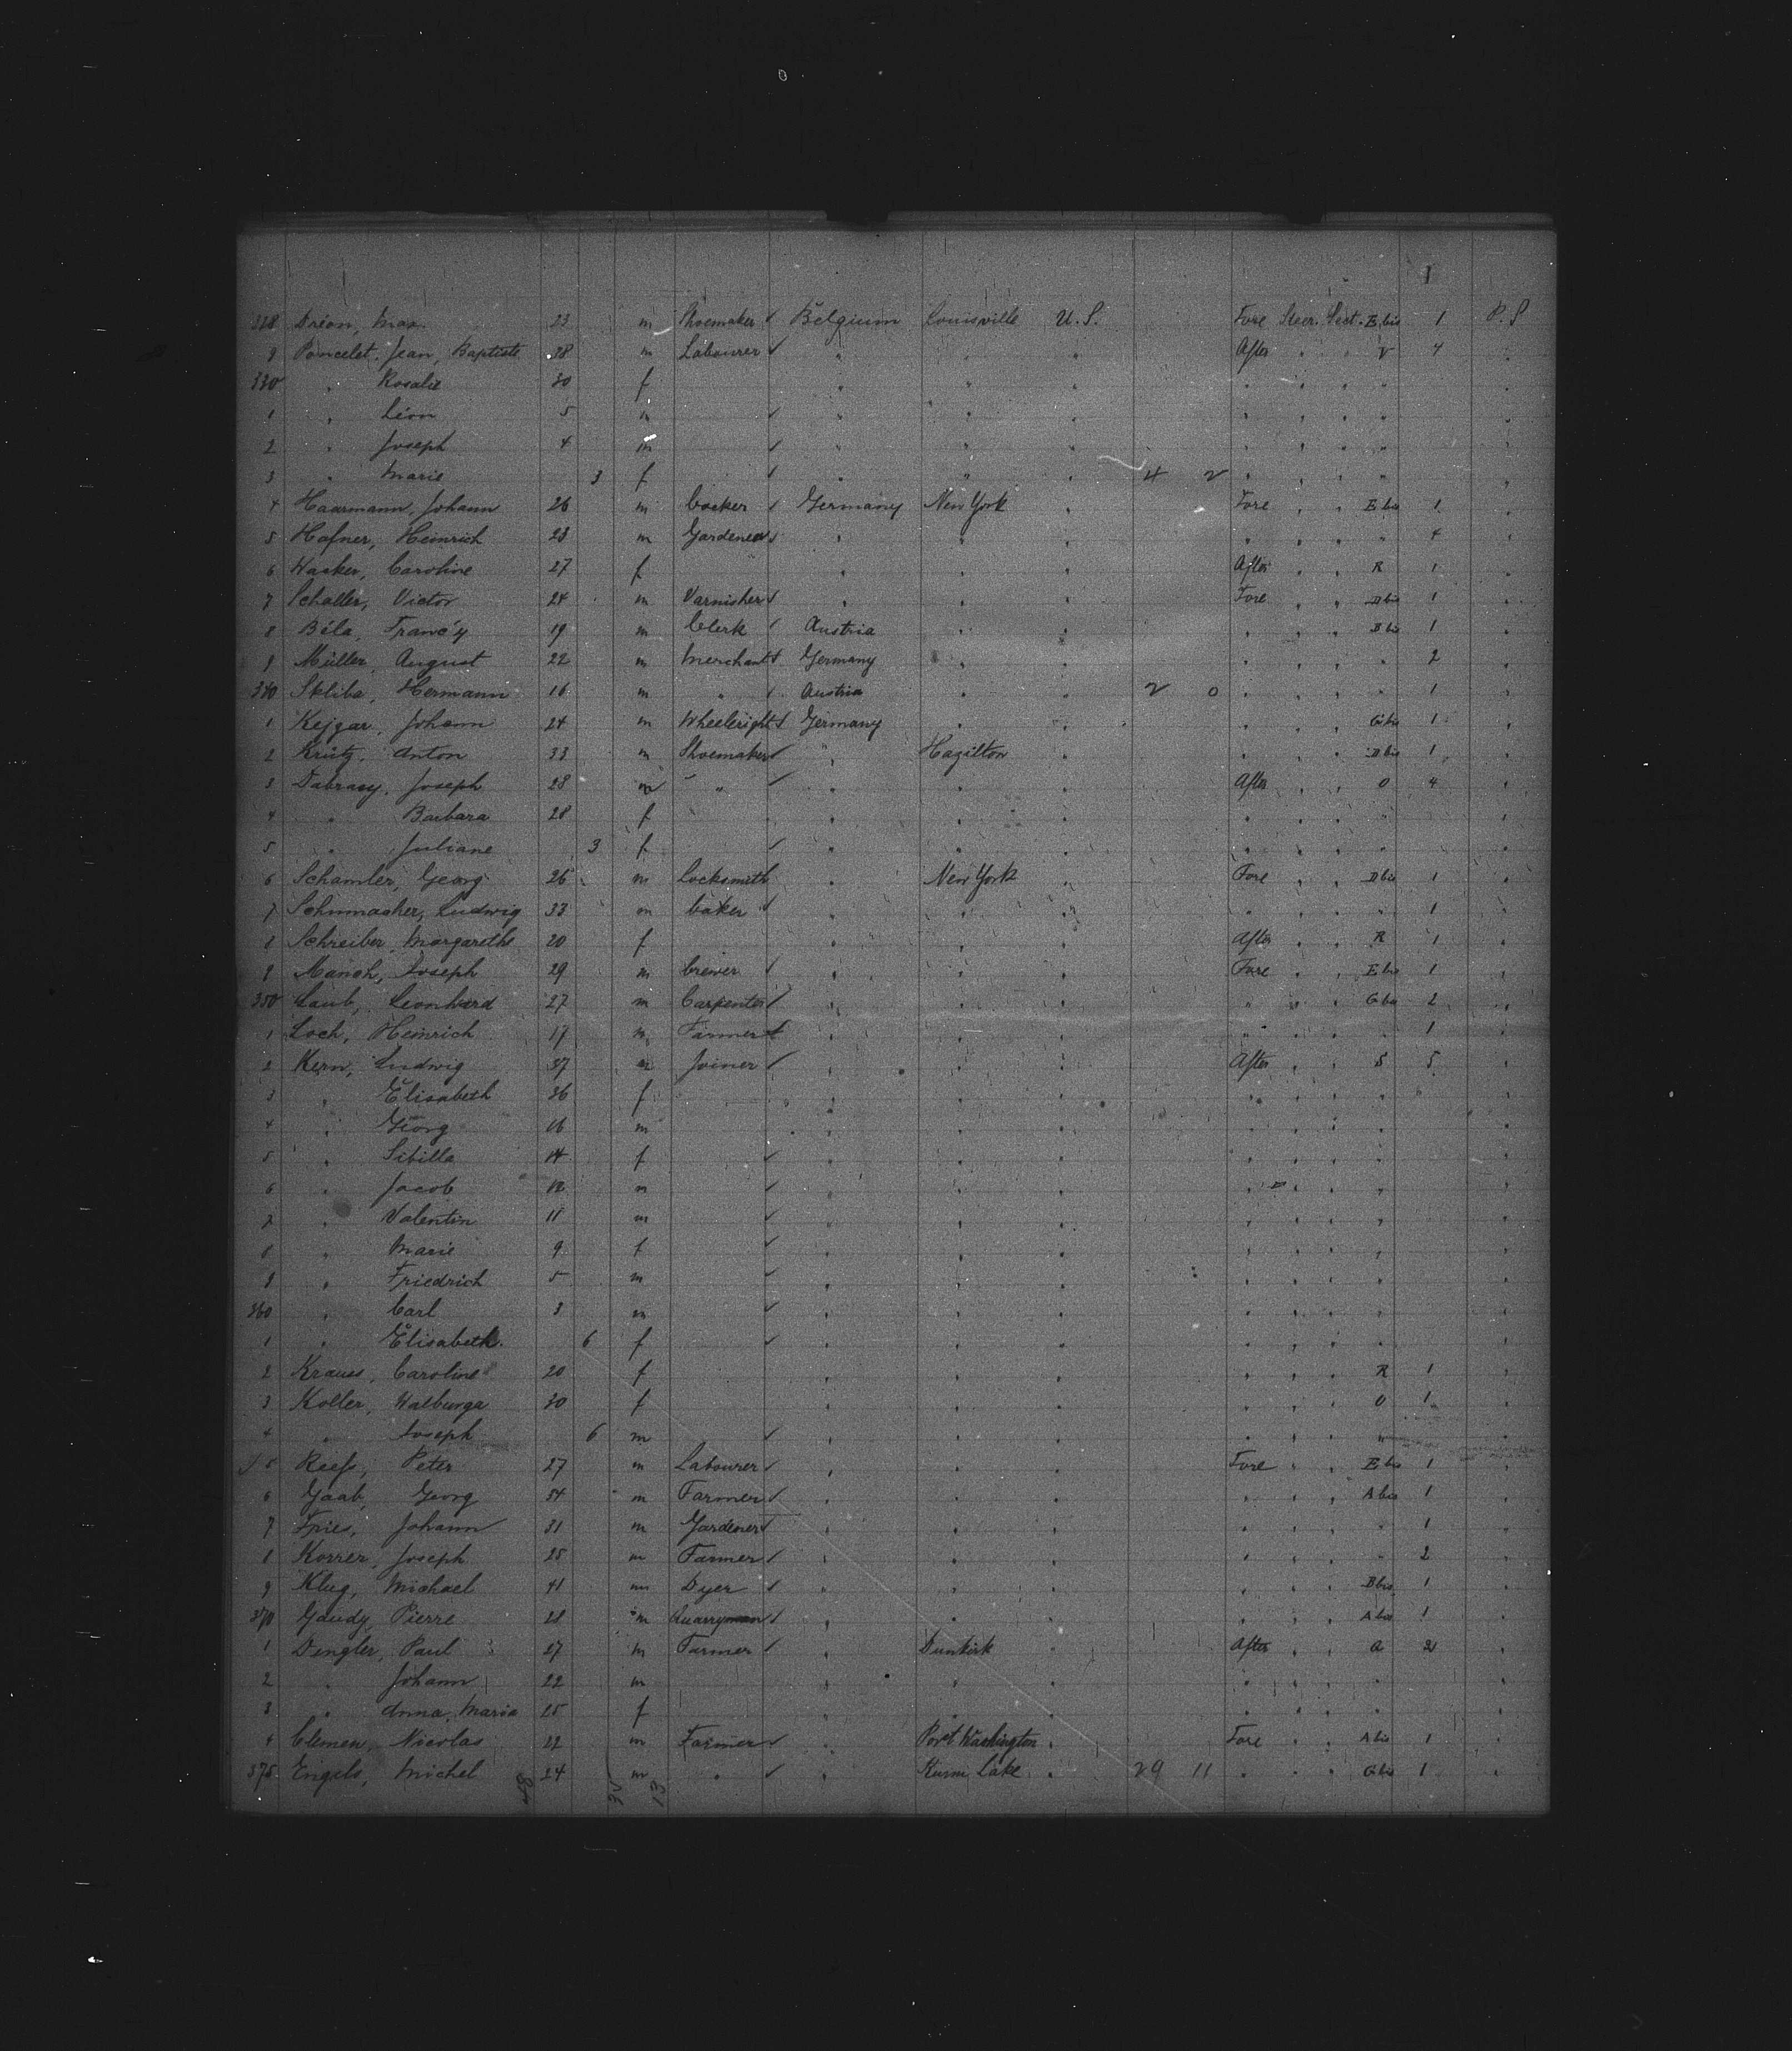 1
328 Dréon, Max. 23 m Shoemaker ✓ Belgium Louisville U.S. Fore Steer. Sect. E bis 1 P.S
9 Poncelet. Jean, Baptiste 38 m Labourer ✓ " " " After " " V 4 "
330 " Rosalie 30 f " " " " " " " "
1 " Léon 5 m ✓ " " " " " " " "
2 " Joseph 4 m ✓ " " " " " " " "
3 " Marie 3 f ✓ " " " 4 2 " " " " "
4 Haarmann, Johann 26 m Cooker ✓ Germany New York " Fore " " E bis 1 "
5 Hafner, Heinrich 23 m Gardener ✓ " " " " " " " 4 "
6 Wacker, Caroline 27 f " " " After " " R 1 "
7 Schaller, Victor 24 m Varnisher ✓ " " " Fore " " D bis 1 "
8 Béla, Francy 19 m Clerk ✓ Austria " " " " " B bis 1 "
9 Müller, August 22 m Merchant ✓ Germany " " " " " " 2 "
340 Skliba, Hermann 16 m " ✓ Austria " " 2 0 " " " " 1 "
1 Kejzar, Johann 24 m Wheelright ✓ Germany " " " " " G bis 1 "
2 Krütz, Anton 33 m Shoemaker ✓ " Hazilton " " " " D bis 1 "
3 Dabrasy, Joseph 28 m " ✓ " " " After " " O 4 "
4 " Barbara 28 f " " " " " " " "
5 " Juliane 3 f ✓ " " " " " " " "
6 Schamler, Georg 26 m Locksmith " New York " Fore " " D bis 1 "
7 Schumacher, Ludwig 33 m baker ✓ " " " " " " " 1 "
8 Schreiber, Margarethe 20 f " " " After " " R 1 "
9 Manch, Joseph 29 m brewer ✓ " " " Fore " " E bis 1 "
350 Laub, Leonhard 27 m Carpenter ✓ " " " " " " G bis 2 "
1 Loch, Heinrich 17 m Farmer ✓ " " " " " " " 1 "
2 Kern, Ludwig 37 m Joiner ✓ " " " After " " S 5 "
3 " Elisabeth 36 f " " " " " " " "
4 " Georg 16 m " " " " " " " "
5 " Sibilla 14 f ✓ " " " " " " " "
6 " Jacob 12 m ✓ " " " " " " " "
7 " Valentin 11 m ✓ " " " " " " " "
8 " Marie 9 f ✓ " " " " " " " "
9 " Friedrich 5 m ✓ " " " " " " " "
360 " Carl 3 m ✓ " " " " " " " "
1 " Elisabeth. 6 f ✓ " " " " " " " "
2 Krauss, Caroline 20 f " " " " " " R 1 "
3 Koller, Walburga 30 f " " " " " " O 1 "
4 " Joseph 6 m ✓ " " " " " " " "
5 Reefs, Peter 27 m Labourer ✓ " " " Fore " " E bis 1 "
6 Gaab, Georg 34 m Farmer ✓ " " " " " " A bis 1 "
7 Fries, Johann 31 m Gardener ✓ " " " " " " " 1 "
8 Korrer, Joseph 25 m Farmer ✓ " " " " " " " 2 "
9 Klug, Michael 41 m Dyer ✓ " " " " " " B bis 1 "
370 Gaudy, Pierre 28 m Quarryman ✓ " " " " " " A bis 1 "
1 Dengler, Paul 27 m Farmer ✓ " Dunkirk " After " " a 2 "
2 " Johann 22 m " " " " " " " "
3 " Anna, Maria 25 f " " " " " " " "
4 Clemen, Nicolas 22 m Farmer ✓ " Port Washington " Fore " " A bis 1 "
375 Engels, Michel 24 m " ✓ " Lake " 29 11 " " " G bis 1 "